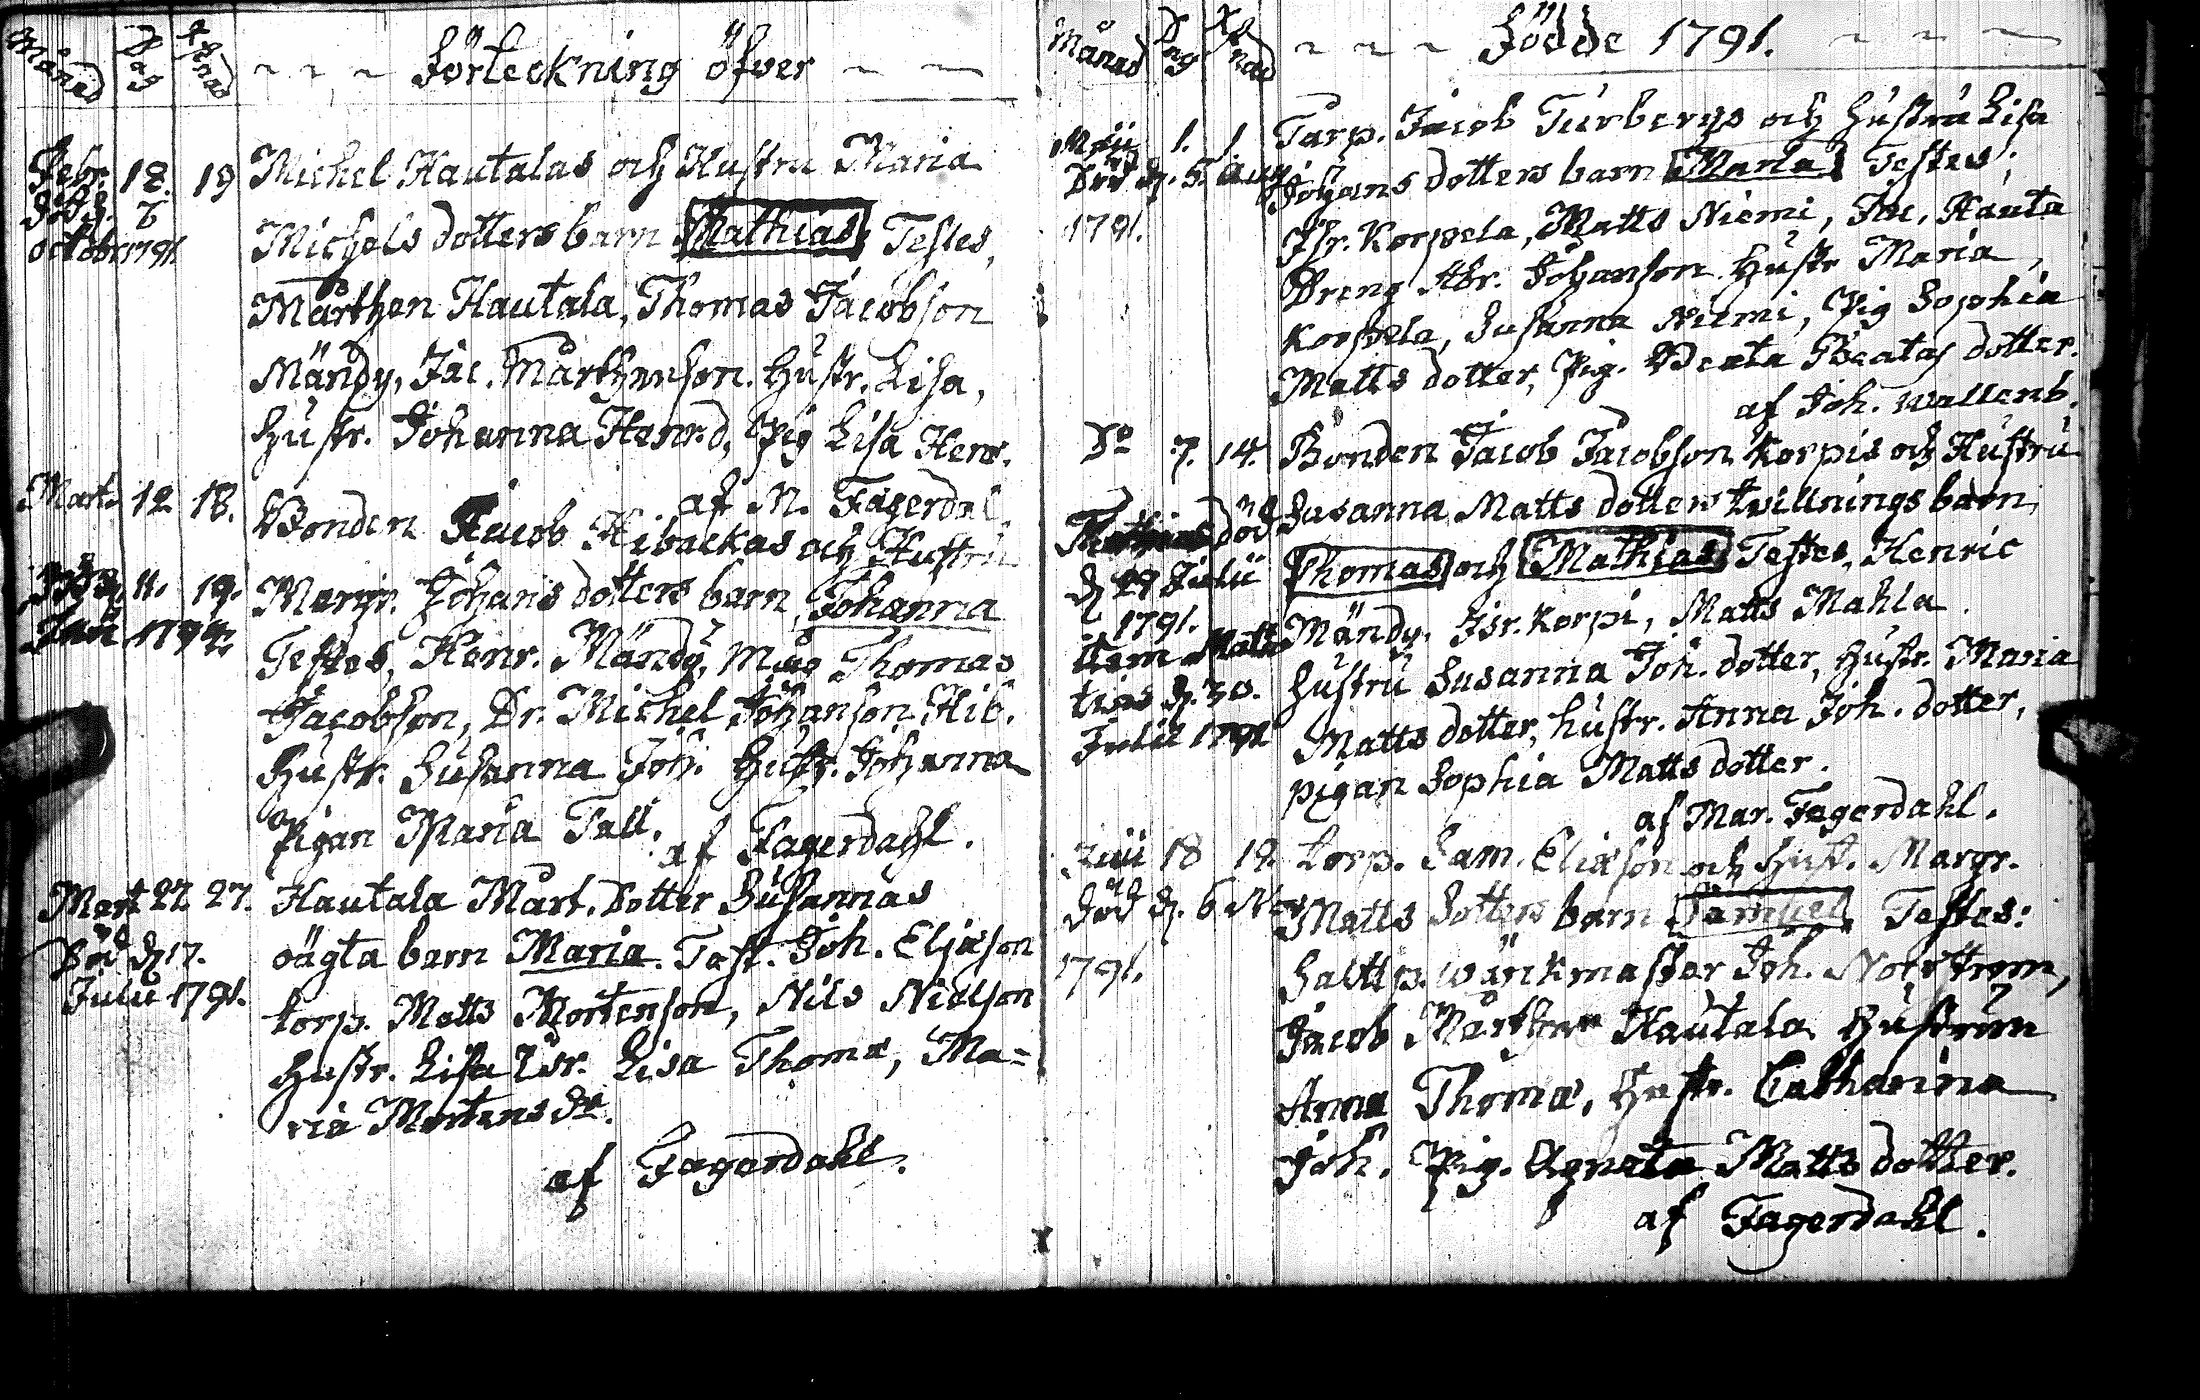 Månad Dag Xstnad
Förteckning öfver
Febr. 18. 19 Michel Hautalas och Hustru Maria
Död d. 6 October 1791
Michels dotters barn Mathias Testes,
Mårthen Hautala, Thomas Jacobson
Mändy, Jac. Mårthenson. Hustr. Lisa,
Hustr. Johanna Henr. d. Pig Lisa Henr.
af M. Fagerdal.
Mart. 12 18. Bonden Jacob Hibackas och Hustru
Margr. Johans dotters barn, Johanna
Testes, Henr. Mändy, Thomas
Jacobson, Dr. Michel Johanson Hib.
Hustr. Susanna Joh. Hustr. Johanna
Pigan Maria Tall.
af Fagerdahl.
Mart 22 27. Hautala Mårt. Dotter Susannas
Död d. 17. Julii 1791.
oägta barn Maria. Test. Joh. Eliæson
torp. Matts Mortenson, Nils Nielson
Hustr. Lisa Isr. Lisa Thomæ, Ma=
ria Mortens dr.
af Fagerdahl.
Månad Dag Xstnad
Födde 1791.
Maii 1. 1. Tarp. Jacob Turbergs och Hustru Lisa
Död d. 5. Aug. 1791.
Johans dotters barn Maria Testes;
Isr. Korpela, Matts Niemi, Jac. Hauta
Dreng Abr. Johanson. Hustr Maria,
Korpela, Susanna Niemi, Pig Sophia
Matts dotter, Pig. Beata Beatas dotter.
af Joh. Wallenb.
Do 7. 14. Bonden Jacob Jacobson Korpis och Hustru
Susanna Matts dotters tvillnings barn
död d. 29 Julii 1791.
item Mat
tias d. 30.
Julii 1791
Thomas och Mathias Testes, Henric
Mändy, Isr. Korpi, Matts Mahla.
Hustru Susanna Joh. dotter, Hustr. Maria
Matts dotter, hustr. Anna Joh. dotter,
pigan Sophia Matts dotter.
af Mar. Fagerdahl.
18 19. torp. Sam. Eliæson och Hust. Margr.
Död d. 6 1791.
Matts dotters barn Samuel, Testes:
Saltp. wärkmastar Joh. Norstrom,
Jacob Mårthen Hautala Hustrun
Anna Thomæ, Hustr. Catharina
Joh. Pig. Agneta Matts dotter.
af Fagerdahl.